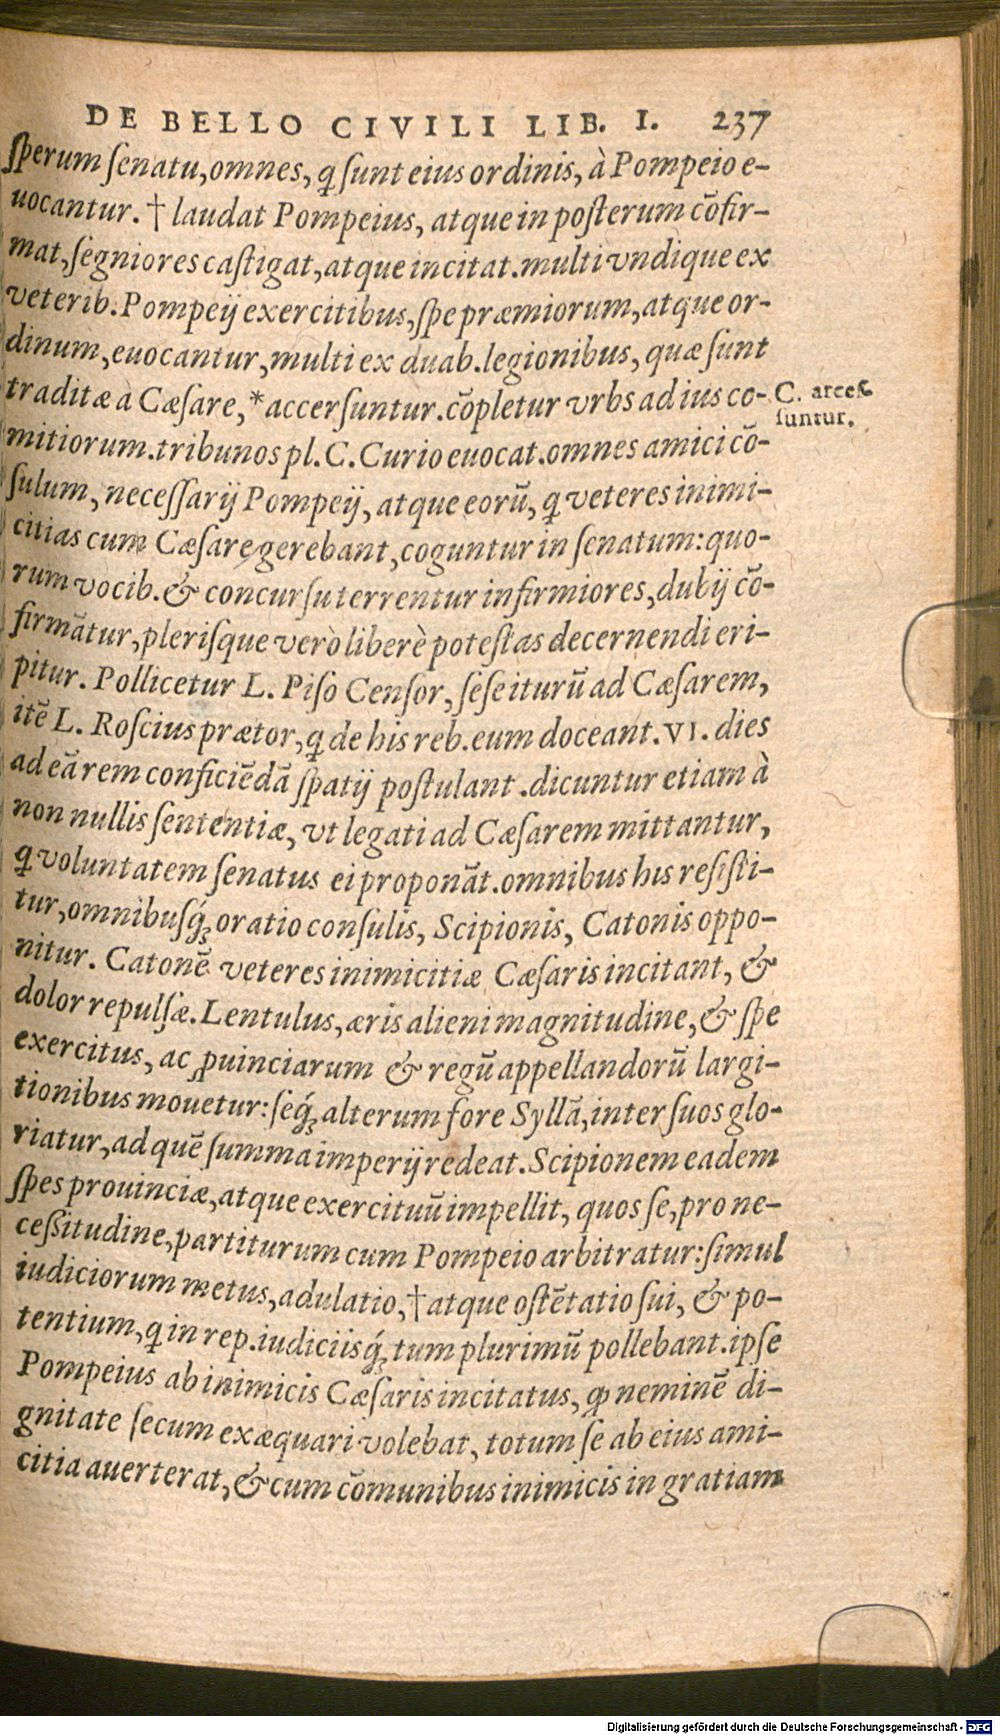 DE BELLO CIVILI LIB. I. 237
ſperum ſenatu, omnes, ꝗ ſunt eius ordinis, à Pompeio e-
uocantur. † laudat Pompeius, atque in poſterum cōfir-
mat, ſegniores caſtigat, atque incitat. multi vndique ex
veterib. Pompeij exercitibus, ſpe præmiorum, atque or-
dinum, euocantur, multi ex duab. legionibus, quæ ſunt
traditæ à Cæſare, * accerſuntur. cōpletur vrbs ad ius co-
C. arceſ
ſuntur.
mitiorum. tribunos pl. C. Curio euocat. omnes amici cō-
ſulum, neceſſarij Pompeij, atque eorū, ꝗ veteres inimi-
citias cum Cæſare gerebant, coguntur in ſenatum: quo-
rum vocib. & concurſu terrentur infirmiores, dubij cō-
firmātur, pleriſque verò liberè poteſtas decernendi eri-
pitur. Pollicetur L. Piſo Cenſor, ſeſe iturū ad Cæſarem,
itē L. Roſcius prætor, ꝗ de his reb. eum doceant. VI. dies
ad eā rem conficiēdā ſpatij poſtulant. dicuntur etiam à
non nullis ſententiæ, vt legati ad Cæſarem mittantur,
ꝗ voluntatem ſenatus ei proponāt. omnibus his reſiſti-
tur, omnibuſq́ꝫ oratio conſulis, Scipionis, Catonis oppo-
nitur. Catonē veteres inimicitiæ Cæſaris incitant, &
dolor repulſæ. Lentulus, æris alieni magnitudine, & ſpe
exercitus, ac ꝓuinciarum & regū appellandorū largi-
tionibus mouetur: ſeq́ꝫ alterum fore Syllā, inter ſuos glo-
riatur, ad quē ſumma imperij redeat. Scipionem eadem
ſpes prouinciæ, atque exercituū impellit, quos ſe, pro ne-
ceſſitudine, partiturum cum Pompeio arbitratur: ſimul
iudiciorum metus, adulatio, † atque oſtētatio ſui, & po-
tentium, ꝗ in rep. iudiciisq́ꝫ tum plurimū pollebant. ipſe
Pompeius ab inimicis Cæſaris incitatus, ꝙ neminē di-
gnitate ſecum exæquari volebat, totum ſe ab eius ami-
citia auerterat, & cum cōmunibus inimicis in gratiam
Digitalisierung gefördert durch die Deutsche Forschungsgemeinschaft - DFG